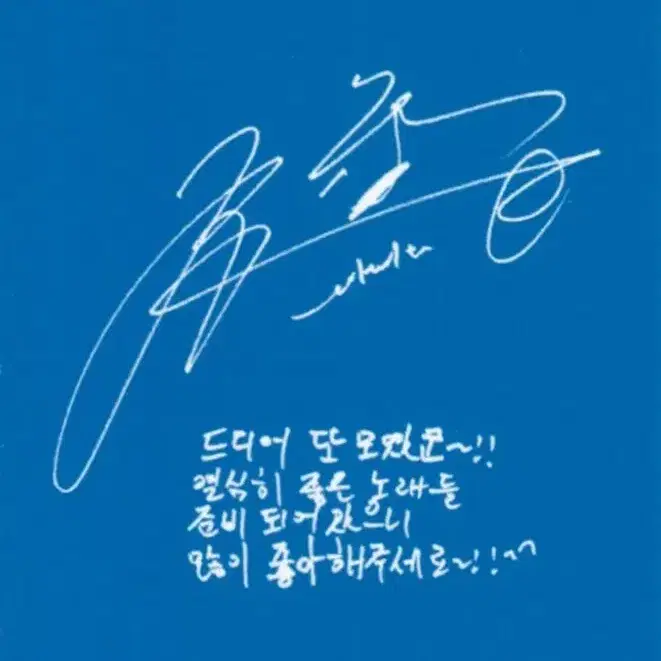 드디어 또 모였군~!!
열심히 좋은 노래들
준비 되어있으니
많이 좋아해주세요~!!^^